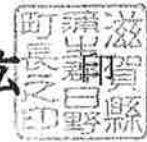 滋賀縣
蒲生郡日野
町長之印
印